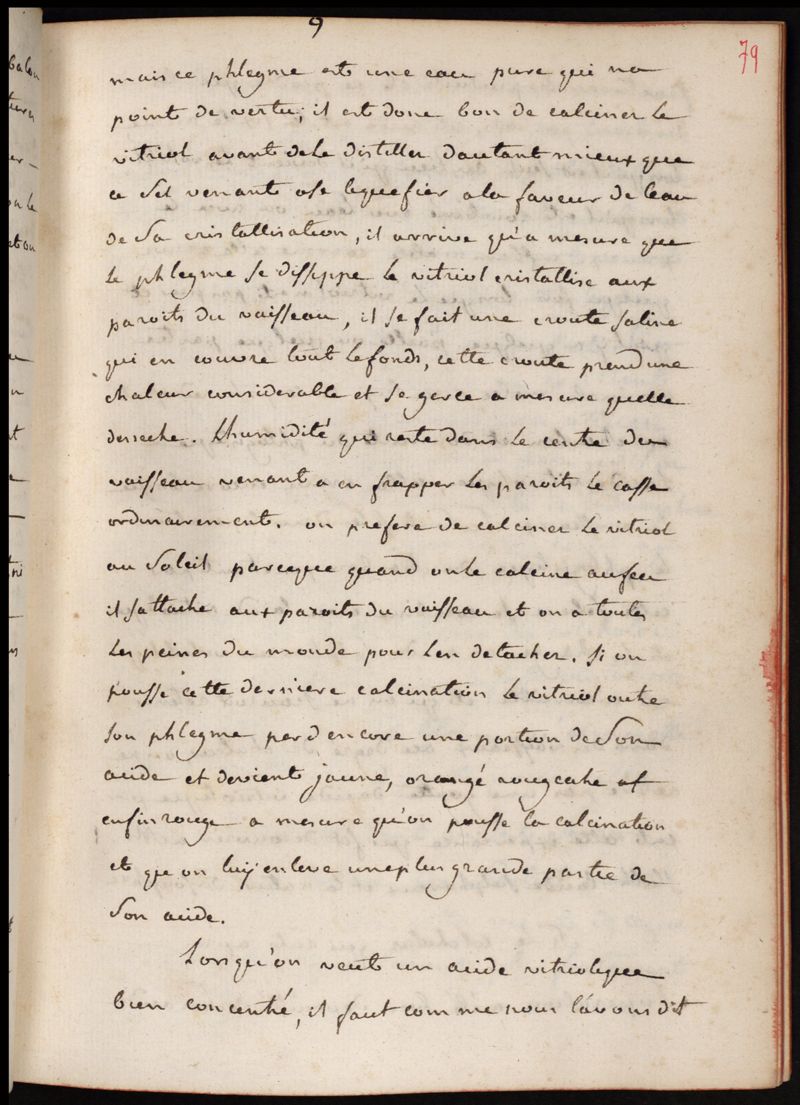 9
79
mais ce phlegme est une eau pure qui na
point de vertu; il est donc bon de calciner le
vitriol avant dele distiller dautant mieux que
ce Sel venant ase liquefier ala faveur de leau
de Sa cristallisation, il arrive qu'a mesure que
le phlegme se dissippe le vitriol cristallise aux
paroits du vaisseau, il se fait une croute saline
qui en couvre tout lefonds, cette croute prend une
chaleur considerable et se gerce a mesure quelle
desseche. l'humidité qui reste dans le centre du
vaisseau venant a en frapper les paroits le casse
ordinairement. on prefere de calciner le vitriol
au Soleil parceque quand onle calcine aufeu
il sattache aux paroits du vaisseau et on a toutes
les peines du monde pour len detacher. Si on
pousse cette derniere calcination le vitriol outre
son phlegme perd encore une portion de Son
acide et devient jaune, orangé rougeatre et
enfin rouge a mesure qu'on pousse la calcination
et que on luy enleve une plus grande partie de
Son acide.
Lorsqu'on veut un acide vitriolique
bien concentré, il faut comme nous l'avons dit